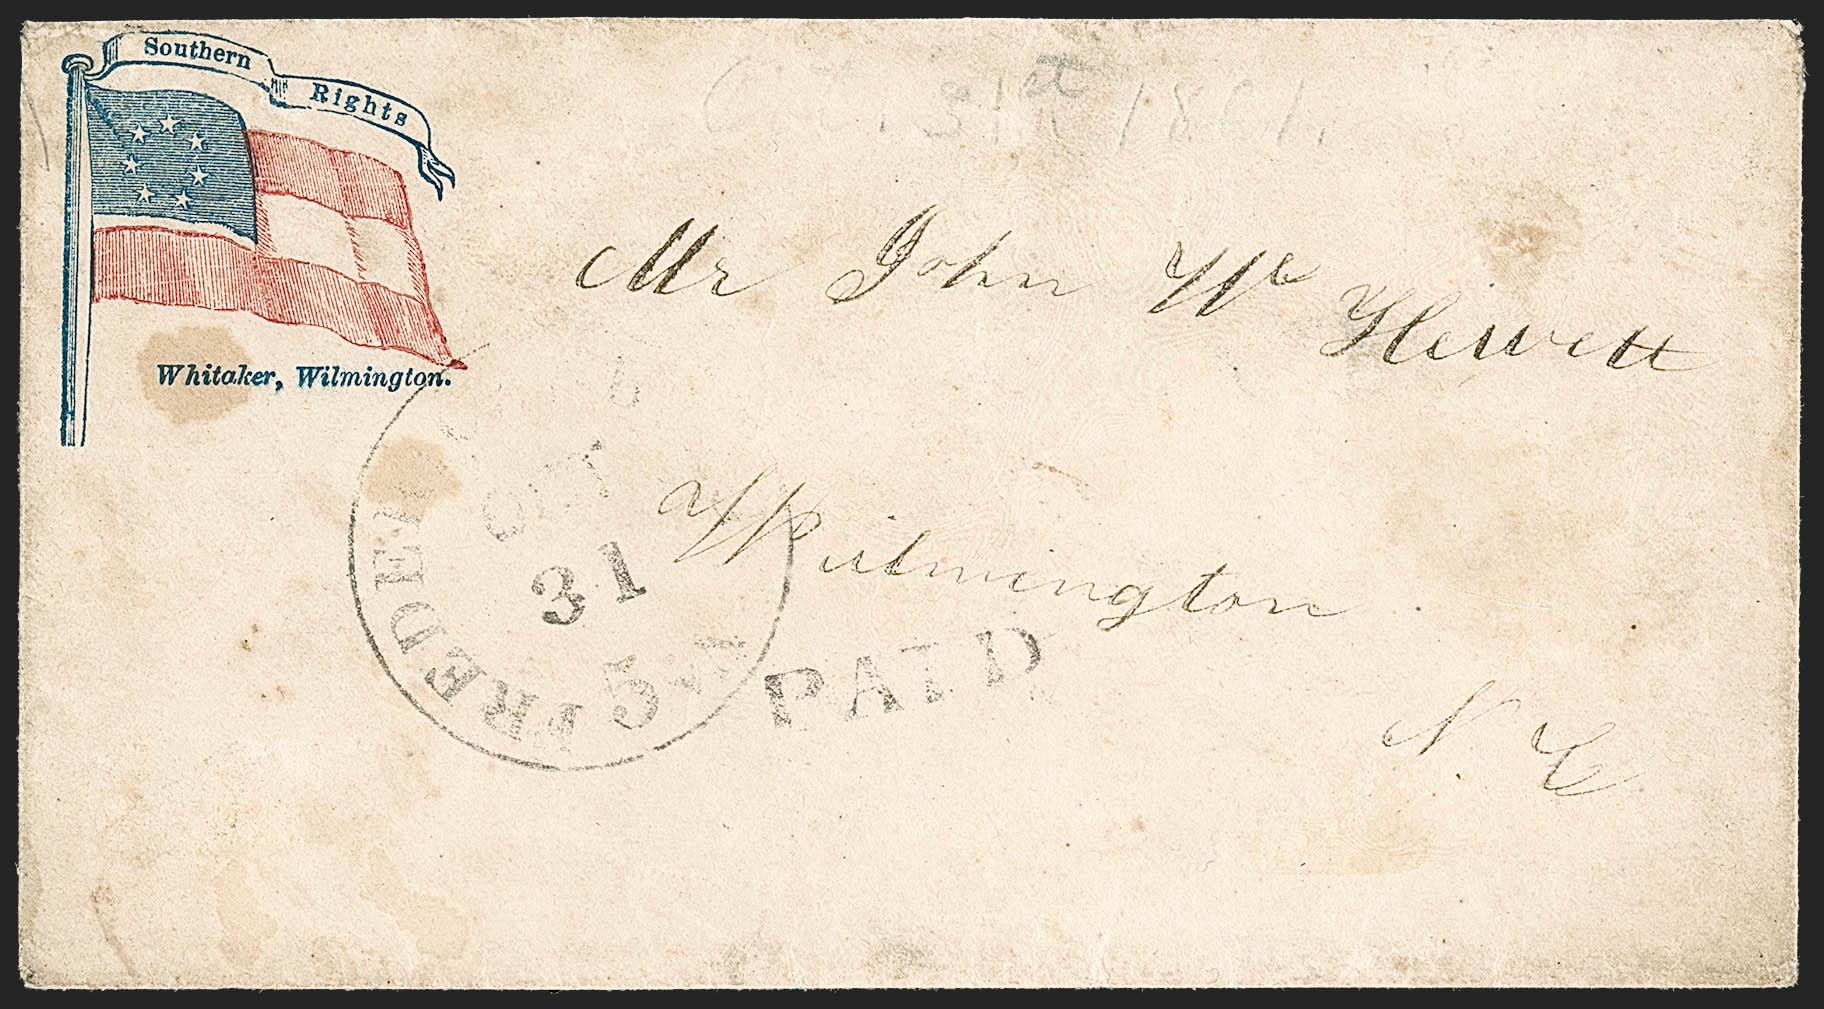 Southern Rights
Oct. 31st 1861.
Whitaker, Wilmington.
Mr John W. Hewett
Wilmington
N. C
FREDE
OCT
31
5
PAID